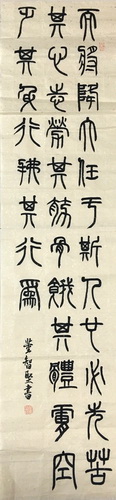 天將降大任于斯人也必先苦
其心志勞其筋骨餓其體膚空
乏其身行拂其行爲
智堅書